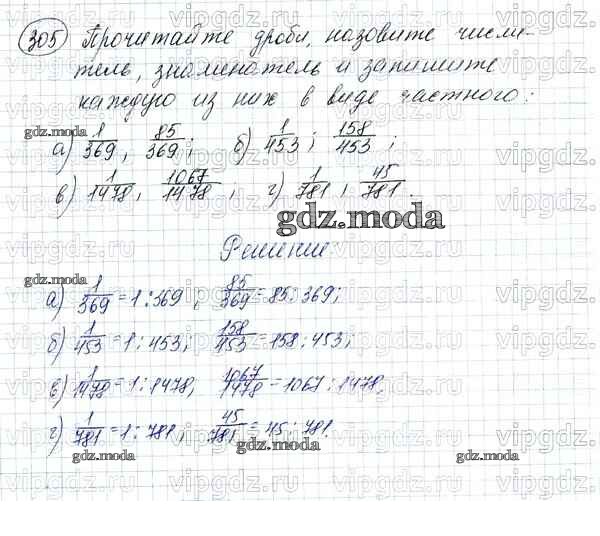 305 Прочитайте дроби, назовите числи-
тель, знаменатель и запишите
каждую из них в виде частного:
а) 1/369, 85/369; б) 1/453; 158/453;
в) 1/1478, 1067/1478, г) 1/781, 45/781.
Решение
а) 1/369 = 1:369, 85/369 = 85:369;
б) 1/453 = 1:453; 158/453 = 158:453;
в) 1/1478 = 1:1478, 1067/1478 = 1067:1478,
г) 1/781 = 1:781, 45/781 = 45:781.
gdz.moda
gdz.moda
gdz.moda
gdz.moda
gdz.moda
gdz.moda
vipgdz.ru